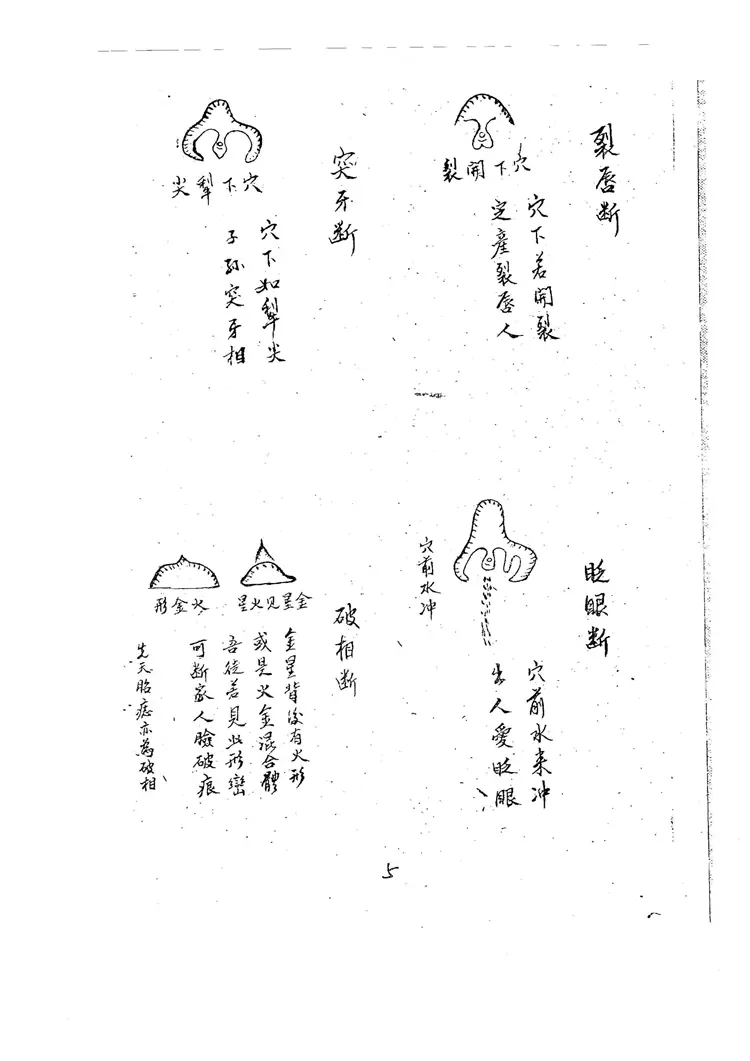 裂唇断
穴下開裂
穴下若開裂
定產裂唇人
突牙断
穴下犁尖
穴下如犁尖
子孫突牙相
眨眼断
穴前水冲
穴前水来冲
出人愛眨眼
破相断
金星见火星
火金形
金星背後有火形
或是火金混合體
吾徒若見此形巒
可断家人臉破痕
先天胎痣亦為破相
5